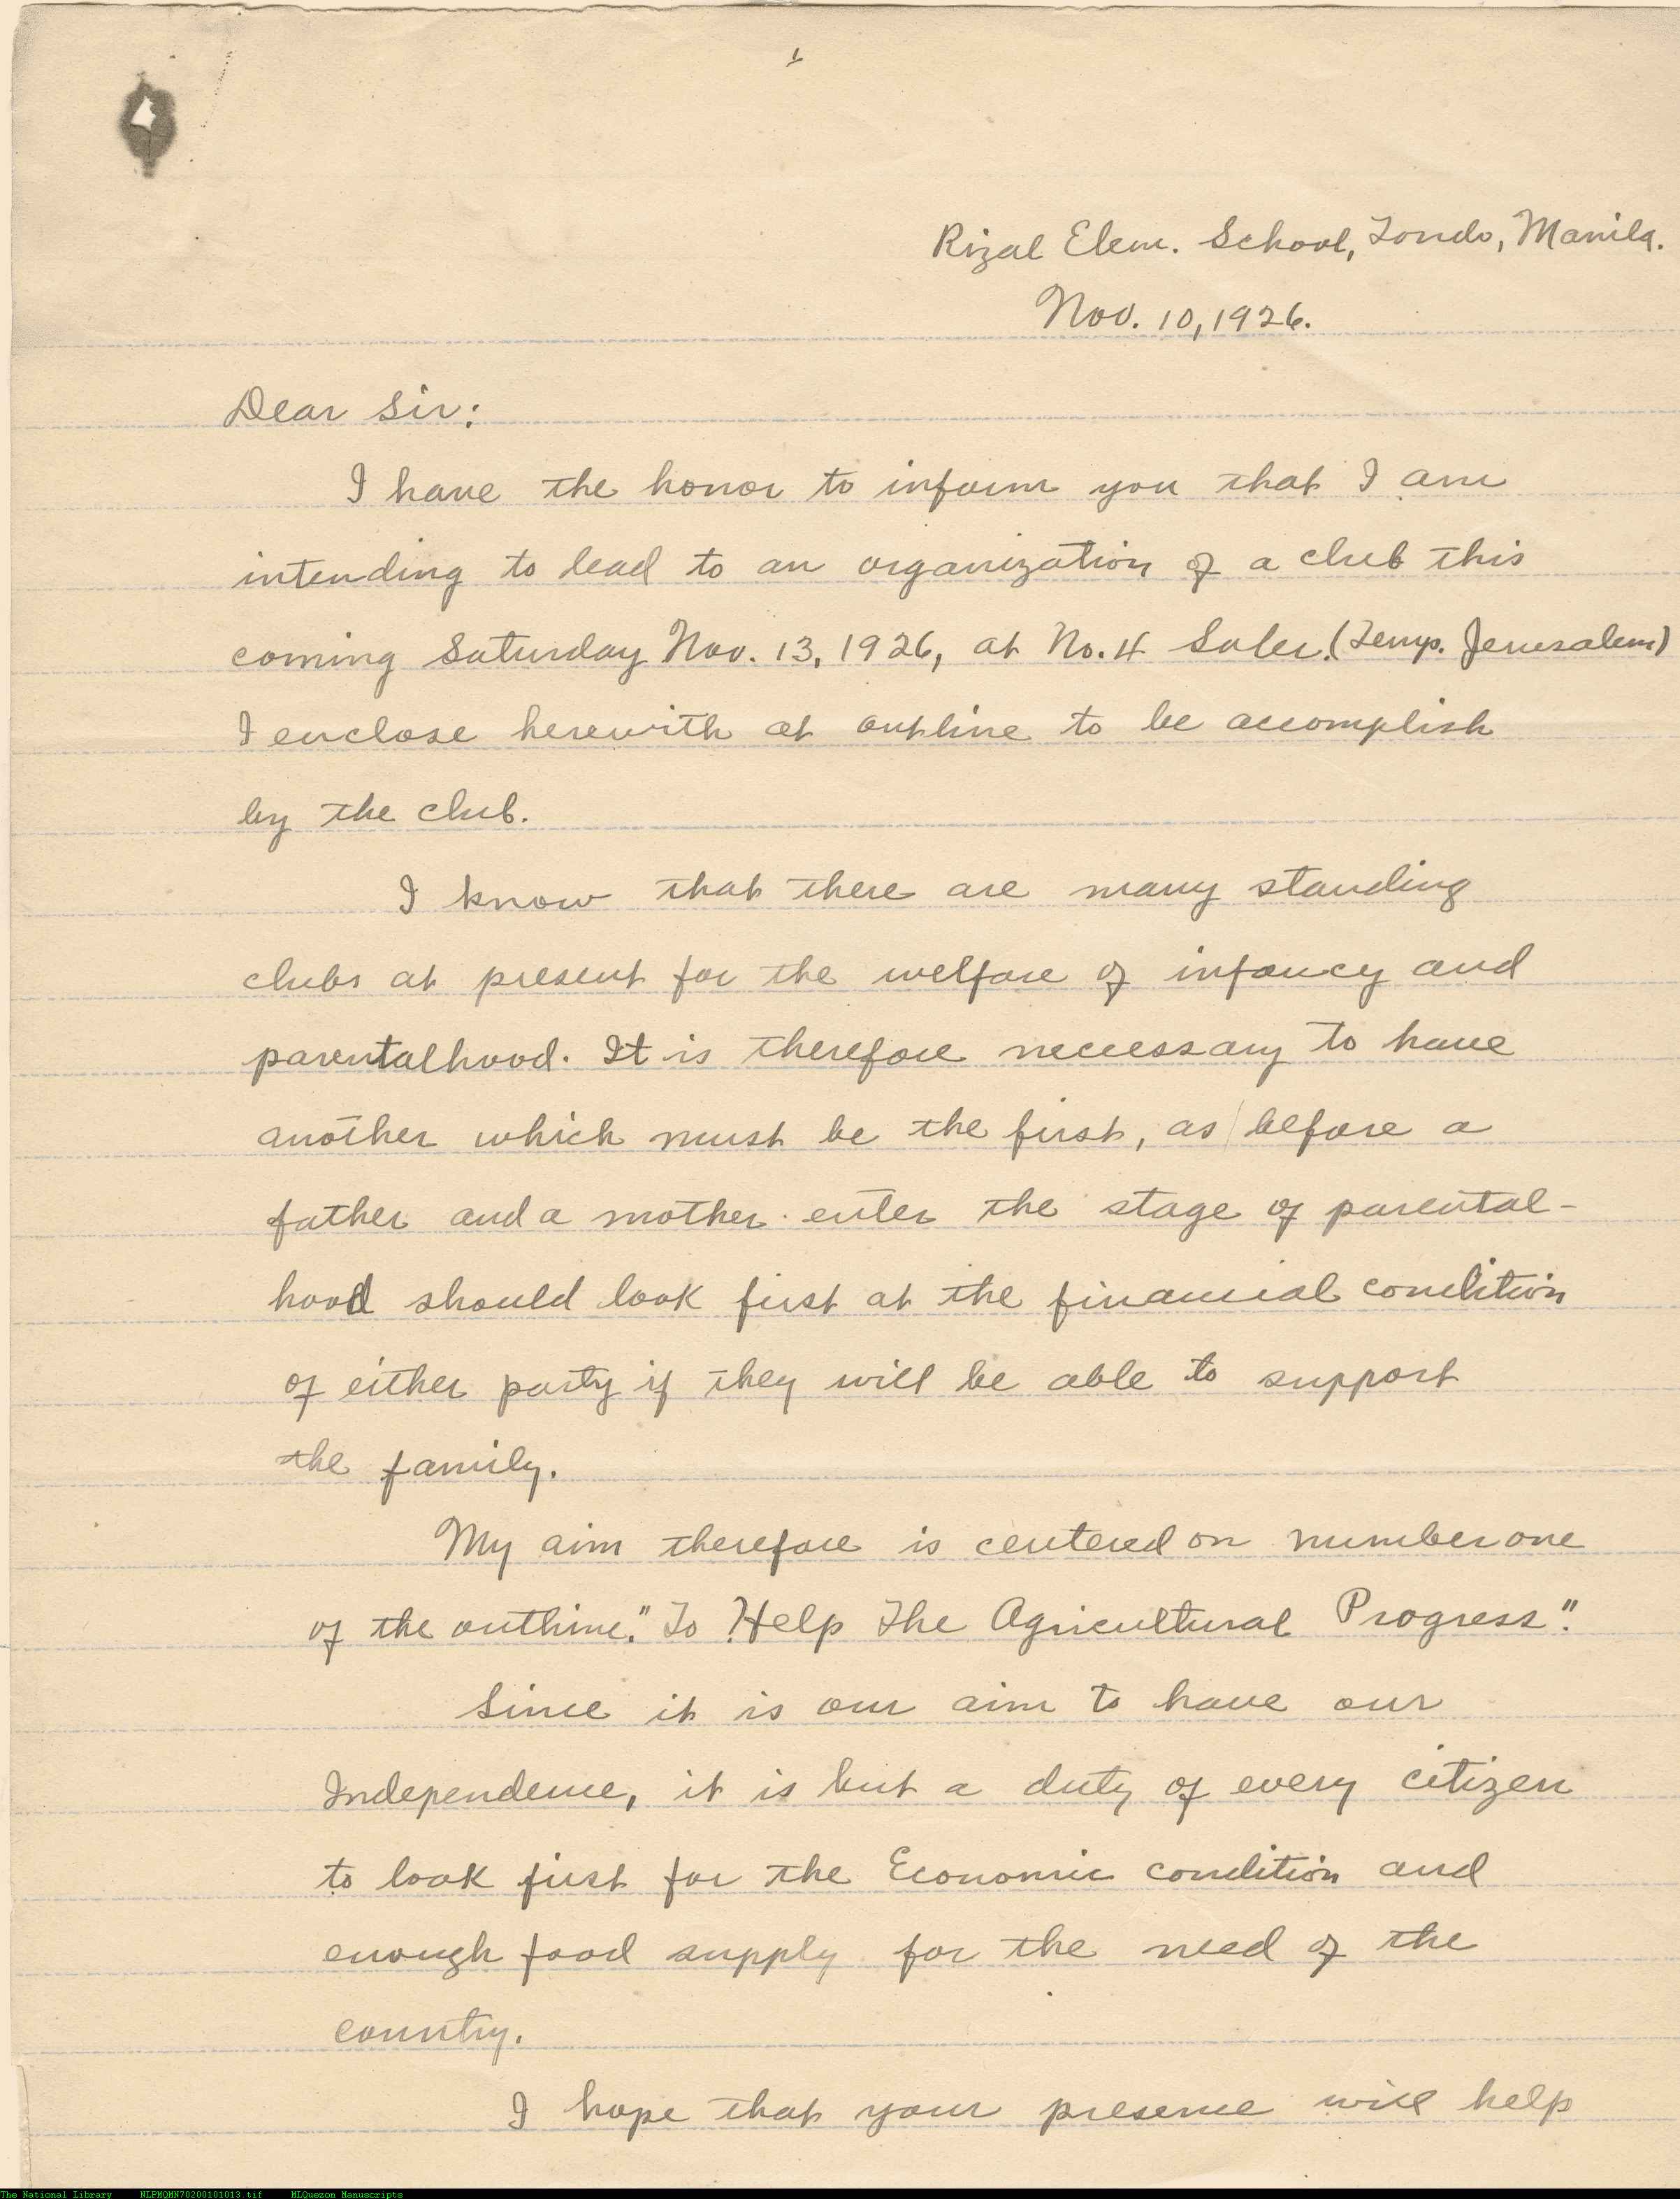 1
Rizal Elem. School, Tondo, Manila.
Nov. 10, 1926.
Dear Sir:
I have the honor to inform you that I am
intending to lead to an organization of a club this
coming Saturday Nov. 13, 1926, at No. 4 Soler. (Temp. Jerusalem)
I enclose herewith at outline to be accomplish
by the club.
I know that there are many standing
clubs at present for the welfare of infancy and
parentalhood. It is therefore necessary to have
another which must be the first, as before a
father and a mother enter the stage of parental-
hood should look first at the financial condition
of either party if they will be able to support
the family.
My aim therefore is centered on number one
of the outline." To Help The Agricultural Progress".
Since it is our aim to have our
Independence, it is but a duty of every citizen
to look first for the Economic condition and
enough food supply for the need of the
country.
I hope that your presence will help
The National Library NLPMQMN70200101013.tif MLQuezon Manuscripts